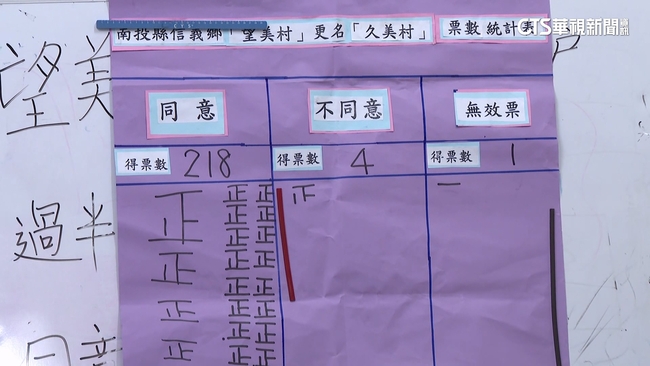 CTS華視新聞
南投縣信義鄉「望美村」更名「久美村」 票數 統計表
望美
同意 不同意 無效票
得票數 218 得票數 4 得票數 1
正 正 正 正 一
過半 正 正
正 正 正
正 正
正 正 正
正 正
正 正 正
正 正
同意 正 正 正